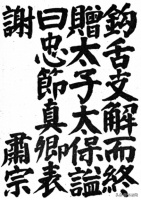 鈎舌支解而終
贈太子太保謚
曰忠節真卿表
謝　肅宗